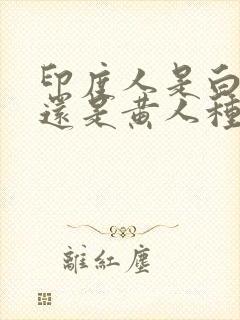 印度人是白
還是黃人種
離紅塵